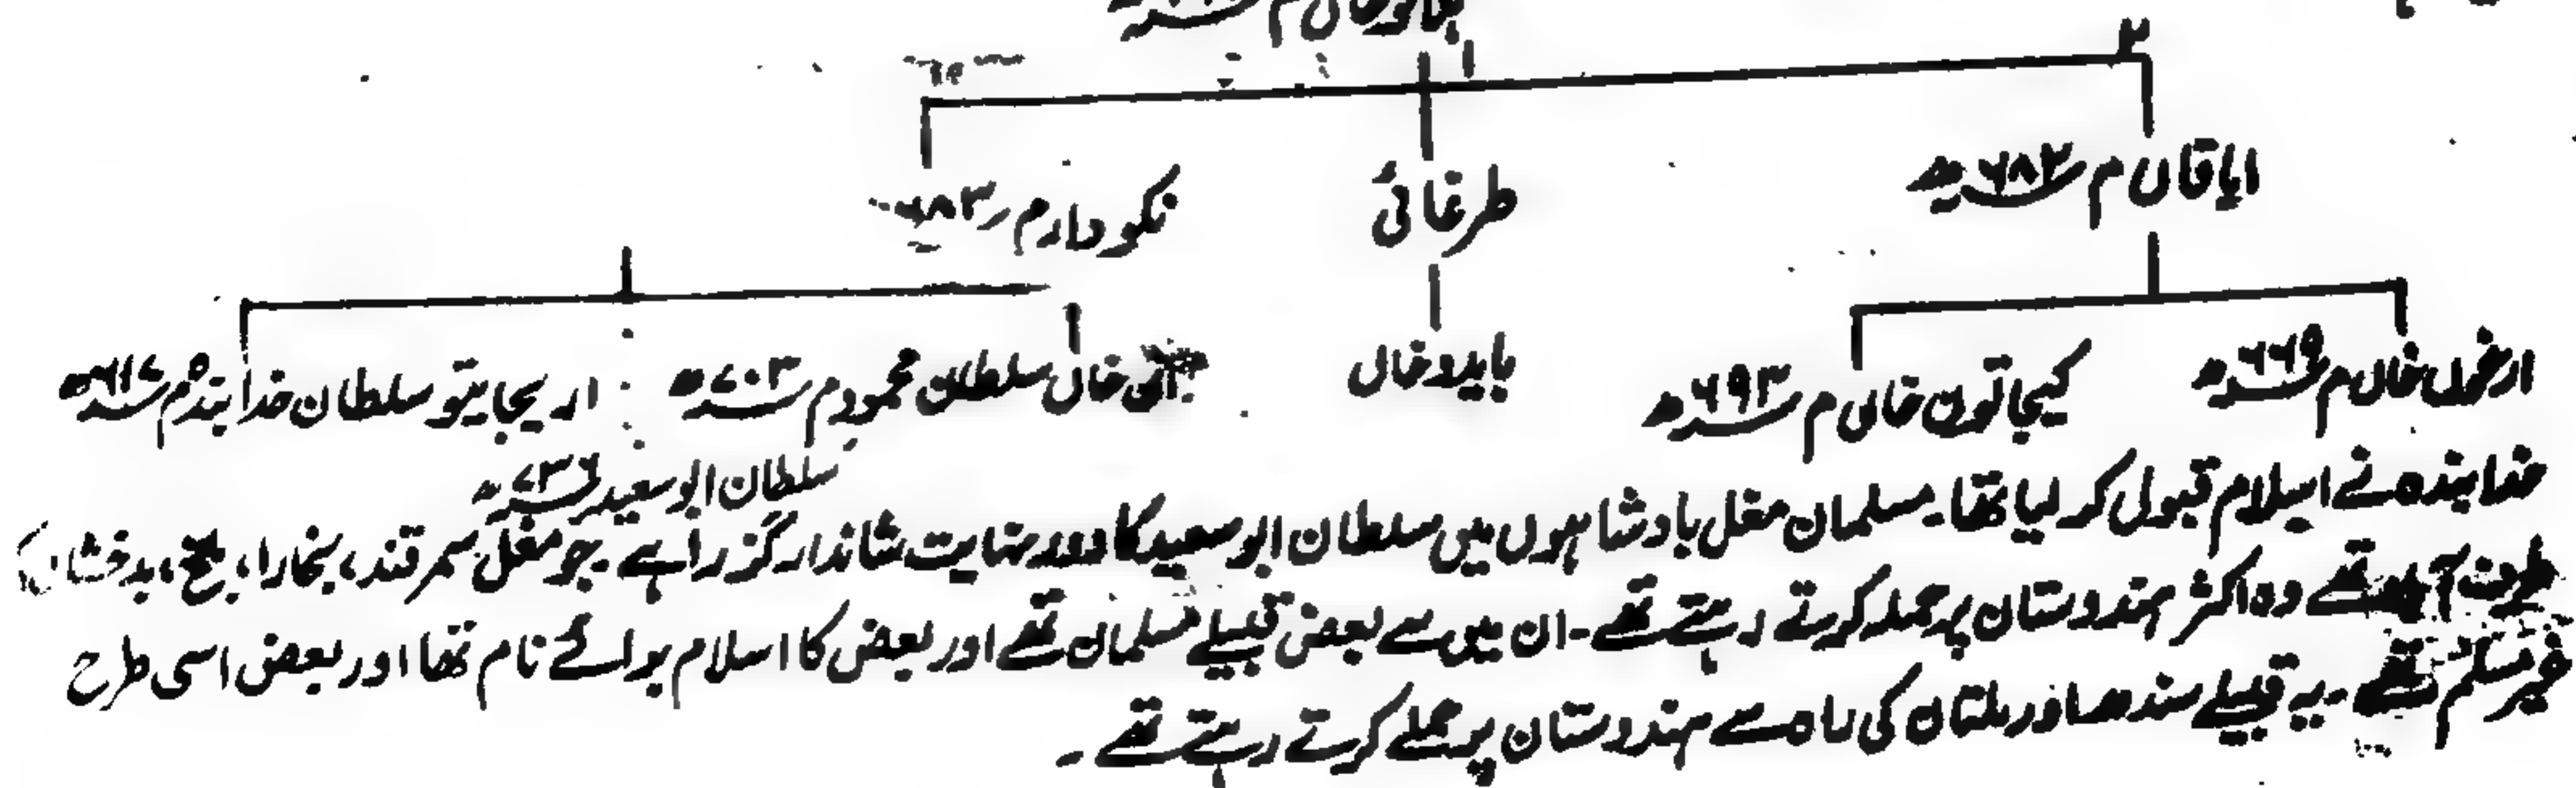 ۲
اباقاں م ۶۸۲ھ
طرغائی
نکودار م ۶۸۳
ارغوں خاں م ۶۶۹ھ
کیجاتوں خاں م ۶۹۳ھ
بایدو خاں
خاں سلطان محمود م ۷۰۳ھ
اریجایتو سلطان خدا بندہ م ۶۱۷ھ
سلطان ابو سعید ۷۳۶ھ
خدا بندہ نے اسلام قبول کر لیا تھا۔ مسلمان مغل بادشاہوں میں سلطان ابو سعید کا دور نہایت شاندار گزرا ہے۔ جو مغل سمرقند، بخارا، بلخ، بدخشاں کی
طرف آباد تھے وہ اکثر ہندوستان پر حملہ کرتے رہتے تھے۔ ان میں سے بعض قبیلے مسلمان تھے اور بعض کا اسلام برائے نام تھا اور بعض اسی طرح
غیر مسلم تھے۔ یہ قبیلے سندھ اور ملتان کی راہ سے ہندوستان پر حملے کرتے رہتے تھے۔